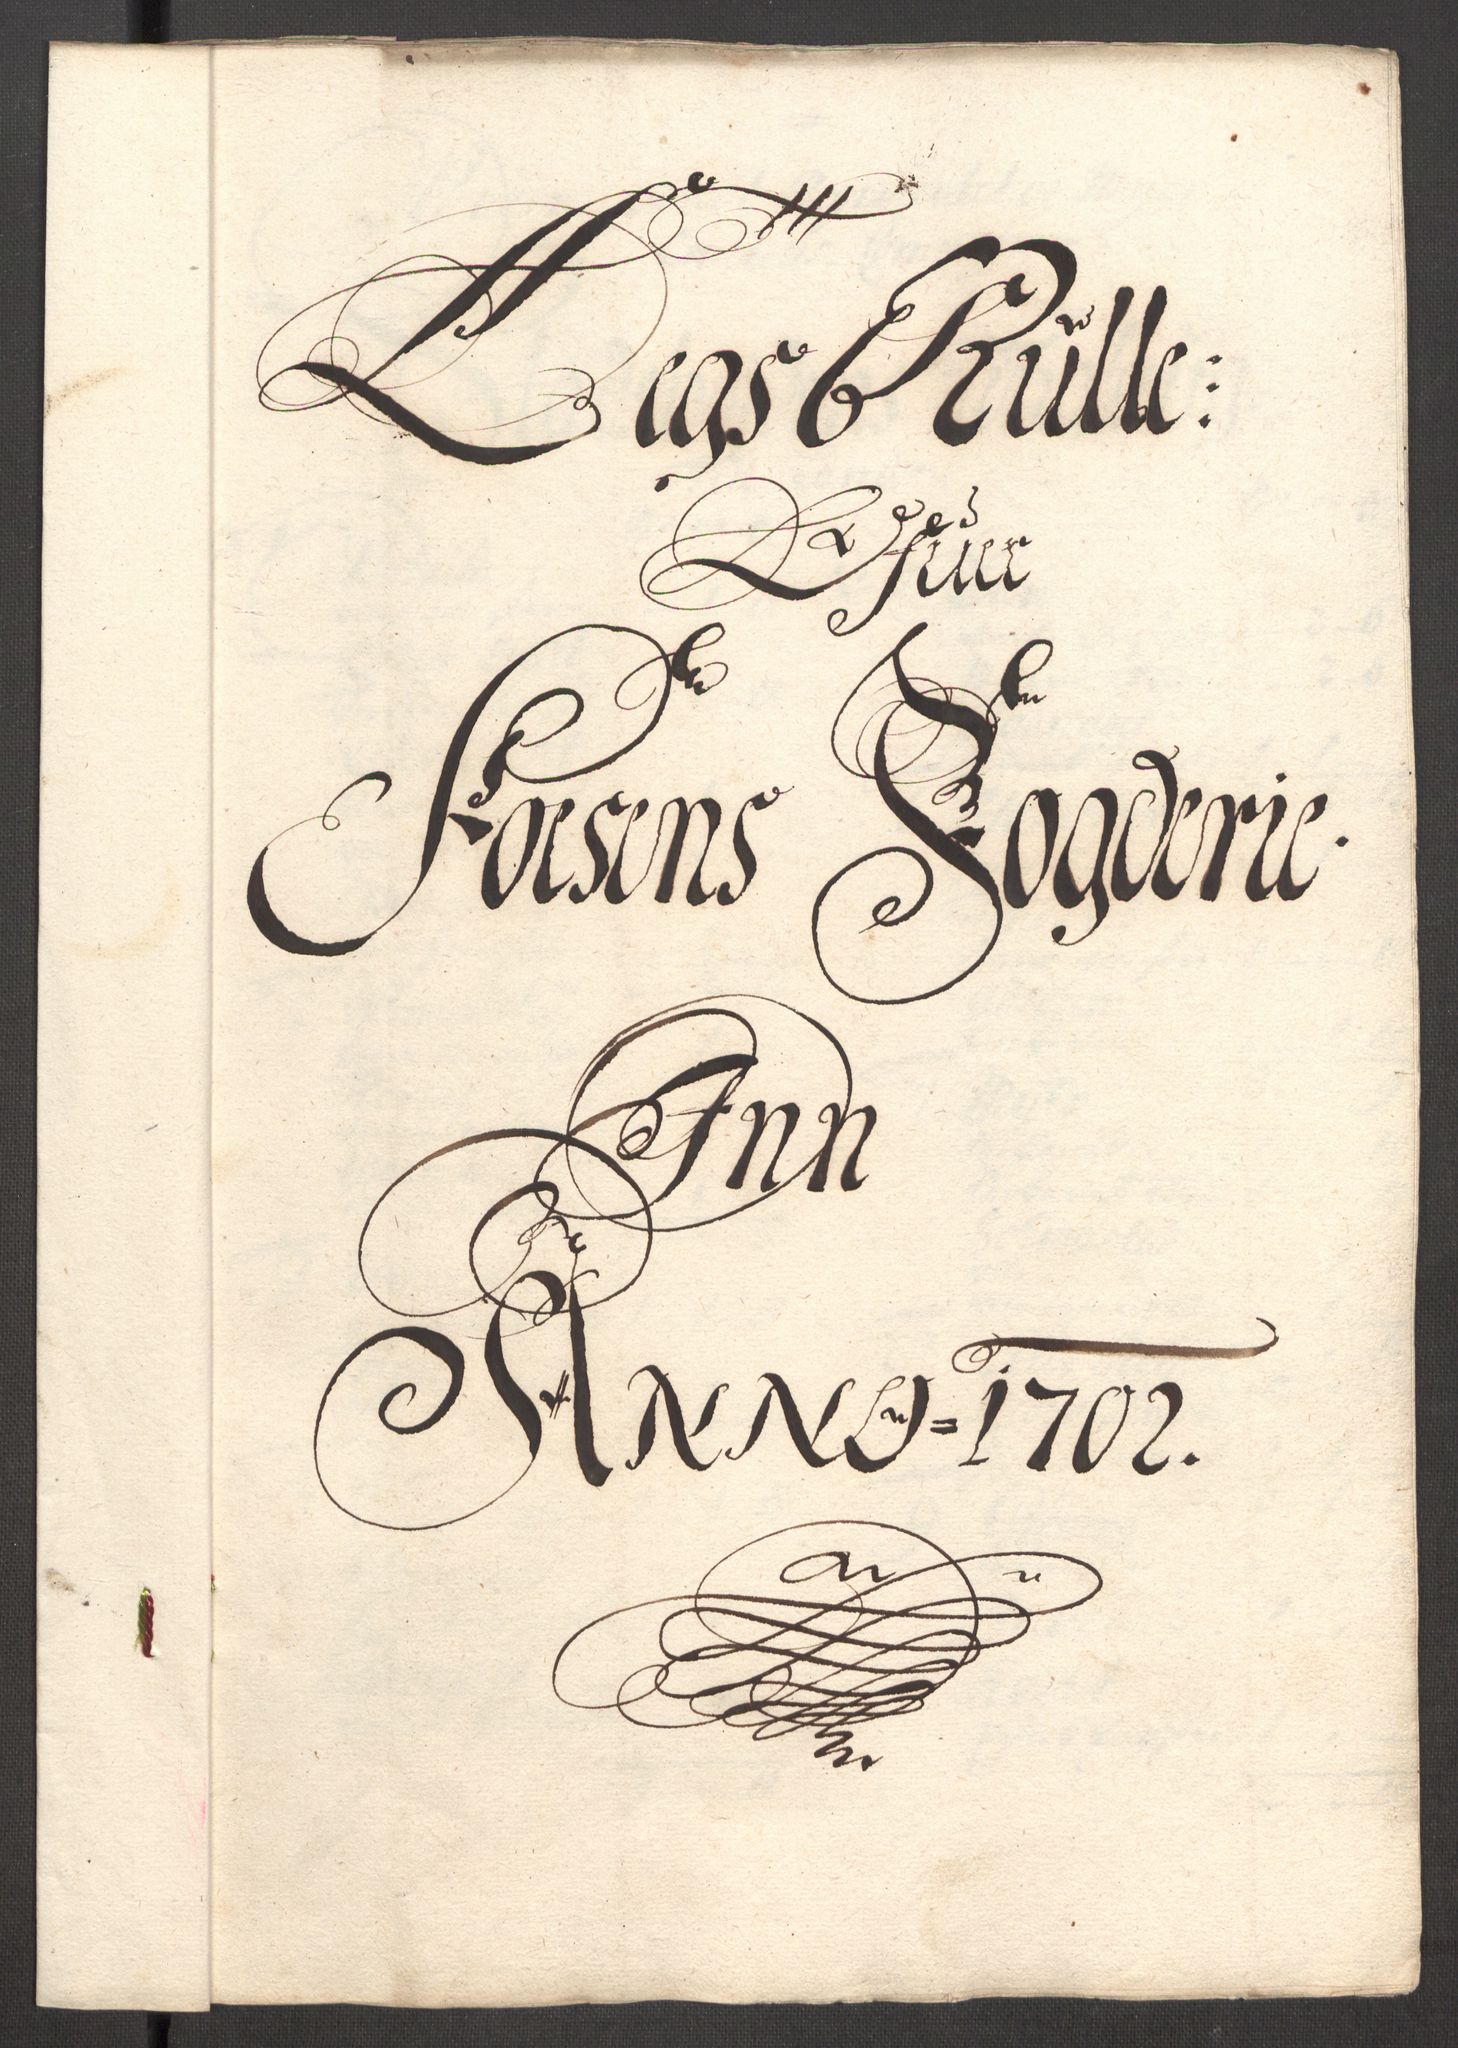 Legs Rülle:
Ofuer
Foesens Fogderie.
Inn
ANNO = 1702.